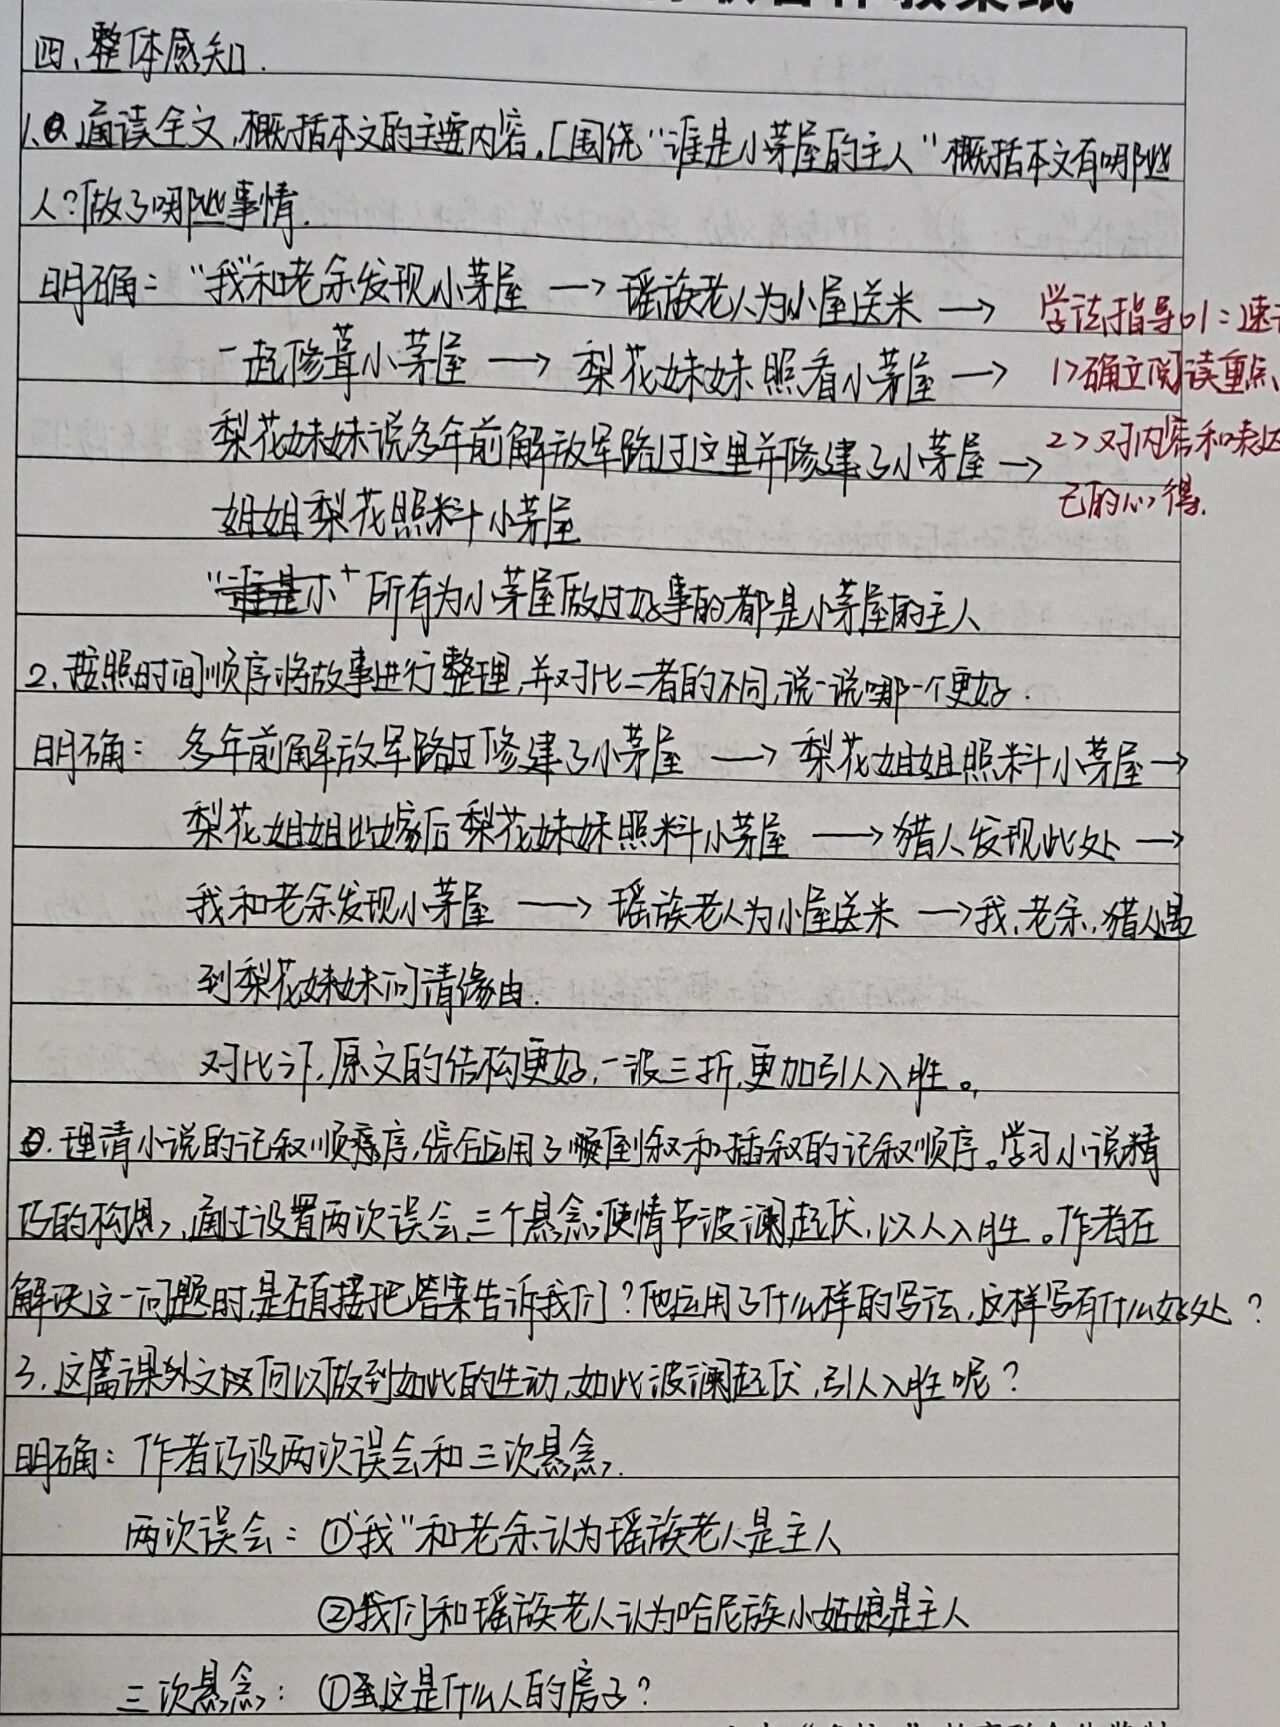 四、整体感知.
1. 通读全文,概括本文的主要内容。[围绕“谁是小茅屋的主人”概括本文有哪些
人?做了哪些事情.
明确:“我”和老余发现小茅屋 → 瑶族老人为小屋送米 →
学法指导01:速
一起修葺小茅屋 → 梨花妹妹照看小茅屋 →
1>确立阅读重点、
梨花妹妹说多年前解放军路过这里并修建了小茅屋 →
2>对内容和表达
姐姐梨花照料小茅屋
己的心得.
所有为小茅屋做过好事的都是小茅屋的主人
2、按照时间顺序将故事进行整理,并对比二者的不同,说一说哪一个更好.
明确: 多年前解放军路过修建了小茅屋 → 梨花姐姐照料小茅屋→
梨花姐姐出嫁后梨花妹妹照料小茅屋 → 猎人发现此处 →
我和老余发现小茅屋 → 瑶族老人为小屋送米 →我,老余,猎人遇
到梨花妹妹问清缘由.
对比下,原文的结构更好,一波三折,更加引人入胜。
理清小说的记叙顺序,综合运用了倒叙和插叙的记叙顺序。学习小说精
巧的构思,通过设置两次误会三个悬念使情节波澜起伏,以人入胜。作者在
解决这一问题时是否直接把答案告诉我们?他运用了什么样的写法,这样写有什么好处?
3、这篇课外文章何以做到如此的生动,如此波澜起伏,引人入胜呢?
明确: 作者巧设两次误会和三次悬念.
两次误会: ①“我”和老余认为瑶族老人是主人
②我们和瑶族老人认为哈尼族小姑娘是主人
三次悬念: ①这是什么人的房子?